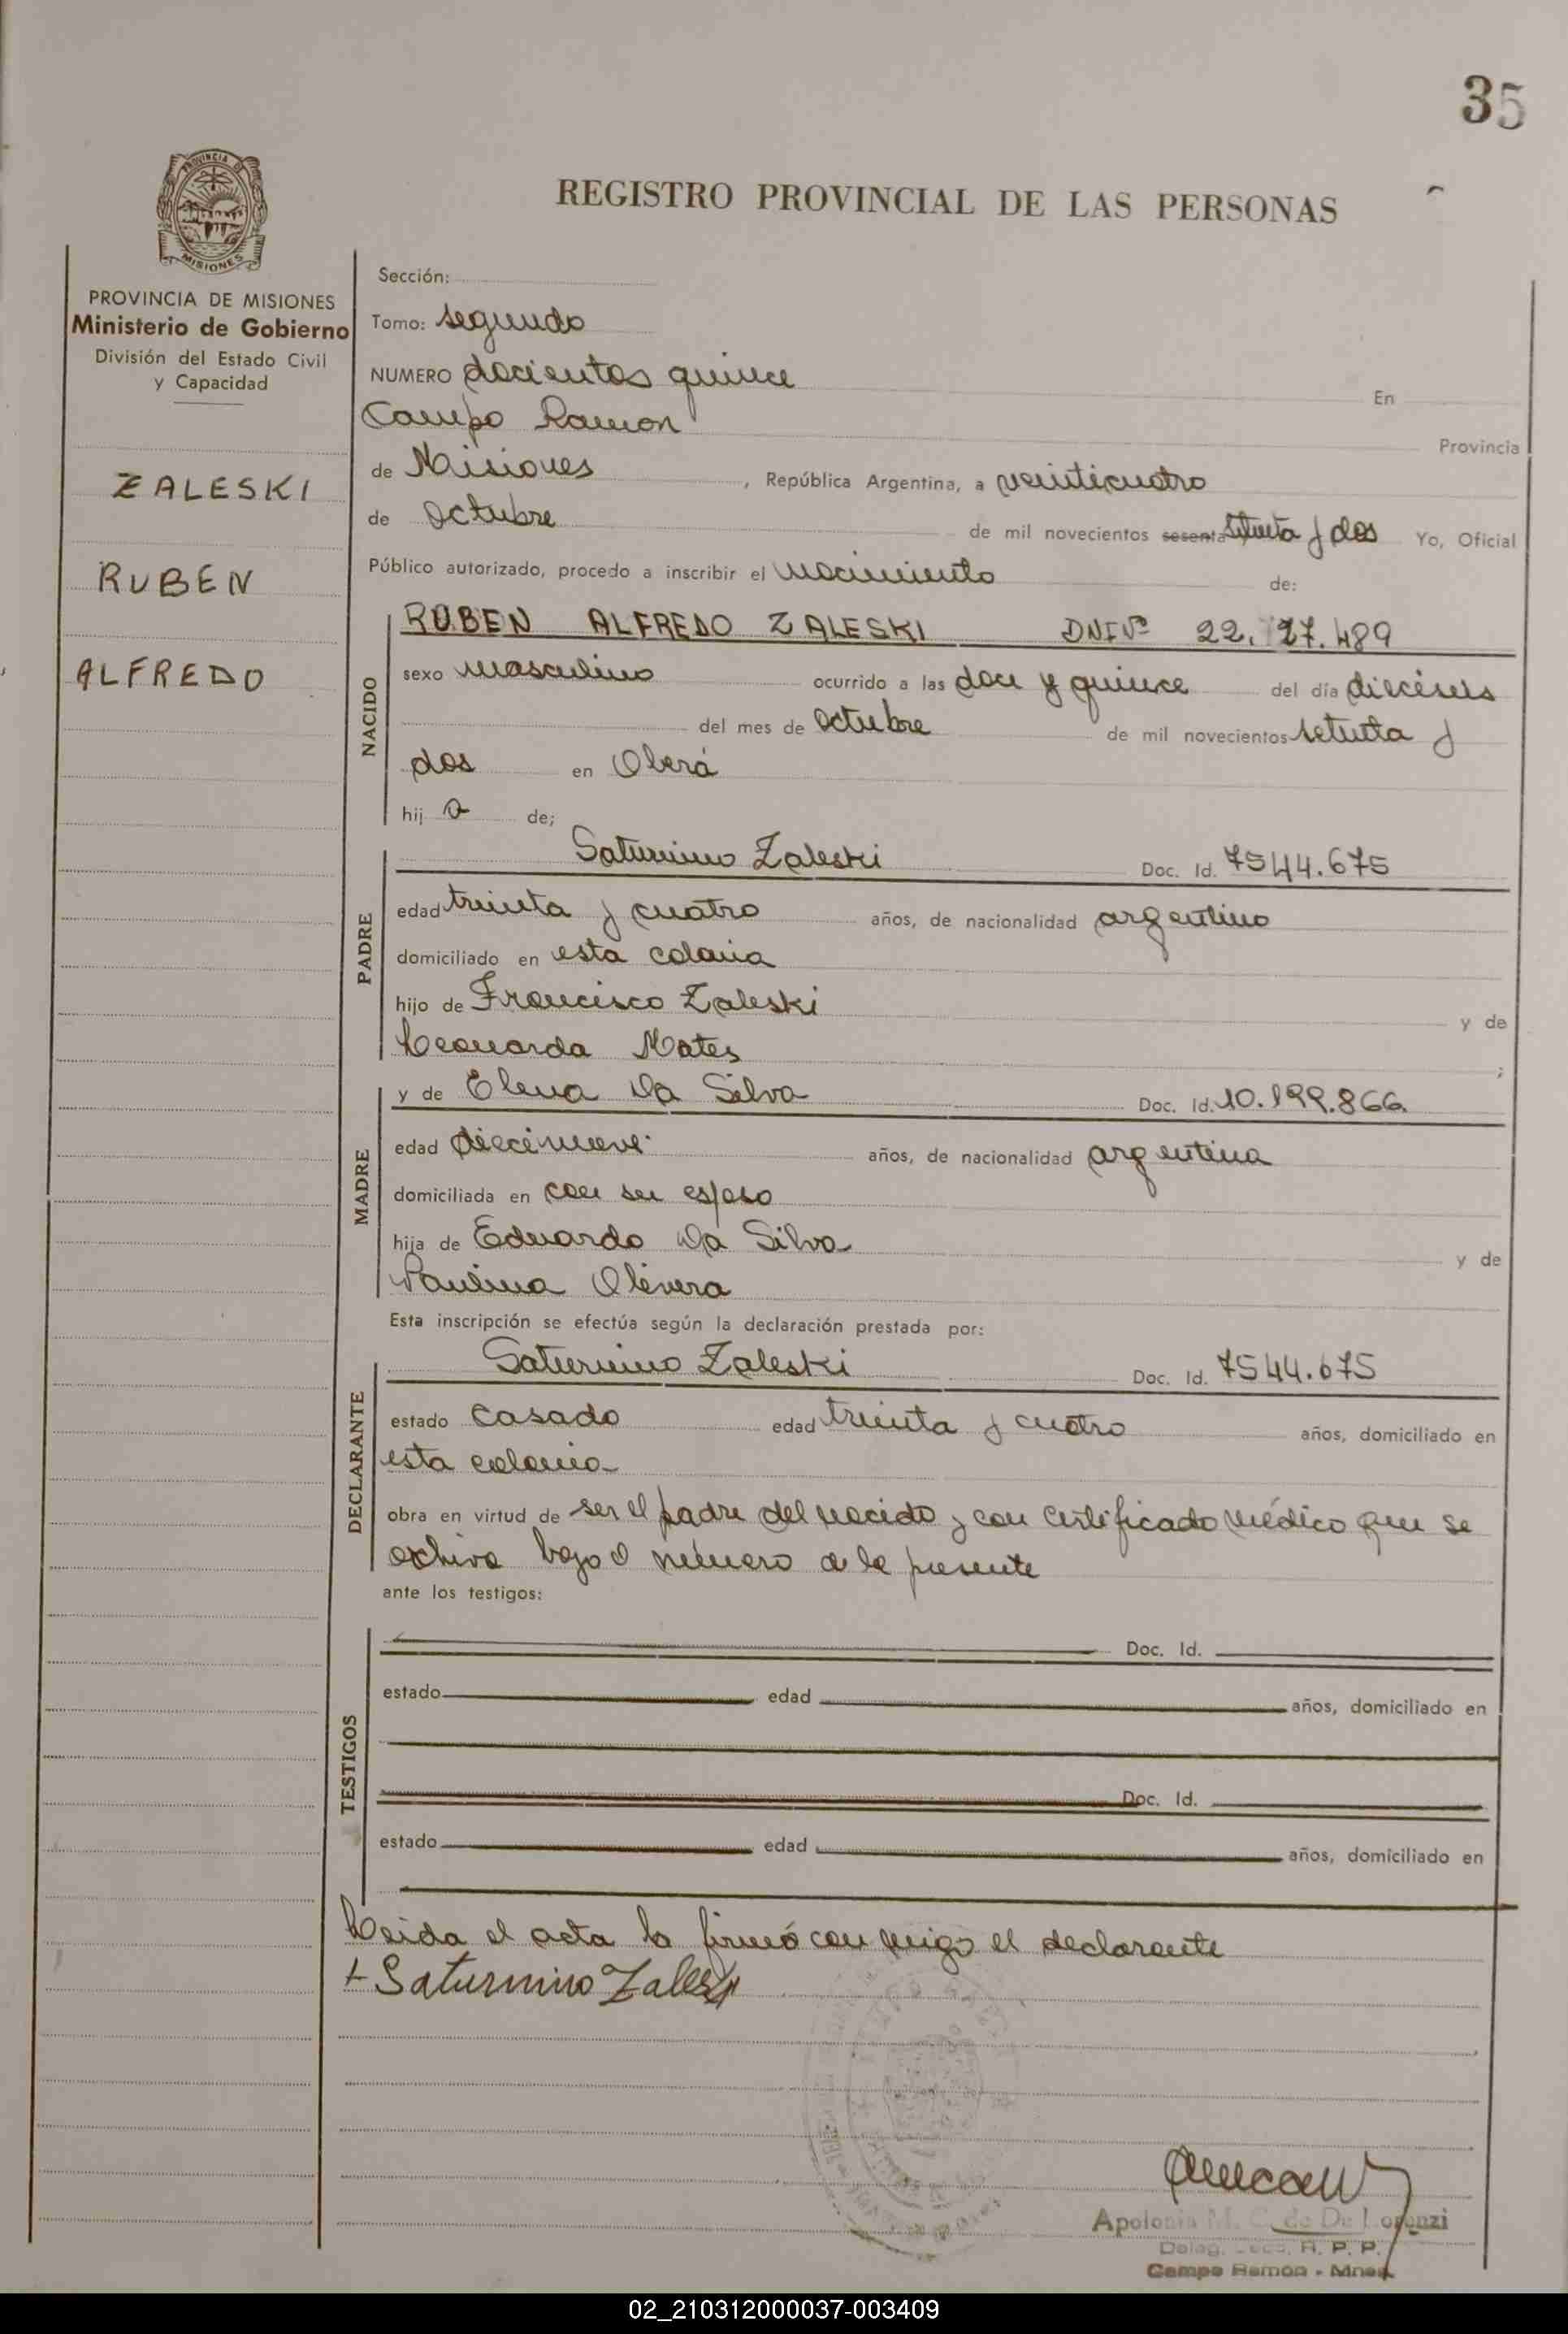 35
PROVINCIA DE
MISIONES
REGISTRO PROVINCIAL DE LAS PERSONAS
PROVINCIA DE MISIONES
Ministerio de Gobierno
División del Estado Civil
y Capacidad
ZALESKI
RUBEN
ALFREDO
Sección:
Tomo: segundo
NUMERO docientos quince En
Campo Ramon Provincia
de Misiones, República Argentina, a veinticuatro
de octubre de mil novecientos sesenta setenta y dos Yo, Oficial
Público autorizado, procedo a inscribir el nacimiento de:
NACIDO
RUBEN ALFREDO ZALESKI DNI Nº 22. 27.489
sexo masculino ocurrido a las doce y quince del día dieciseis
del mes de octubre de mil novecientos setenta y
dos en Oberá
hij o de;
PADRE
Saturnino Zaleski Doc. Id. 7544.675
edad treinta y cuatro años, de nacionalidad argentino
domiciliado en esta colonia
hijo de Francisco Zaleski y de
Leonarda Mates ;
MADRE
y de Elena Da Silva Doc. Id. 10.199.866
edad diecinueve años, de nacionalidad argentina
domiciliada en con su esposo
hija de Eduardo Da Silva y de
Paulina Olivera
Esta inscripción se efectúa según la declaración prestada por:
DECLARANTE
Saturnino Zaleski Doc. Id. 7544.675
estado casado edad treinta y cuatro años, domiciliado en
esta colonia
obra en virtud de ser el padre del nacido y con certificado médico que se
archiva bajo el número de la presente
ante los testigos:
TESTIGOS
Doc. Id.
estado edad años, domiciliado en
Doc. Id.
estado edad años, domiciliado en
Leida el acta la firmó con migo el declarante
+ Saturnino Zaleski
Apolonia M. C. de De Lorenzi
Deleg. R. P. P.
Campo Ramón - Mnes.
02_210312000037-003409